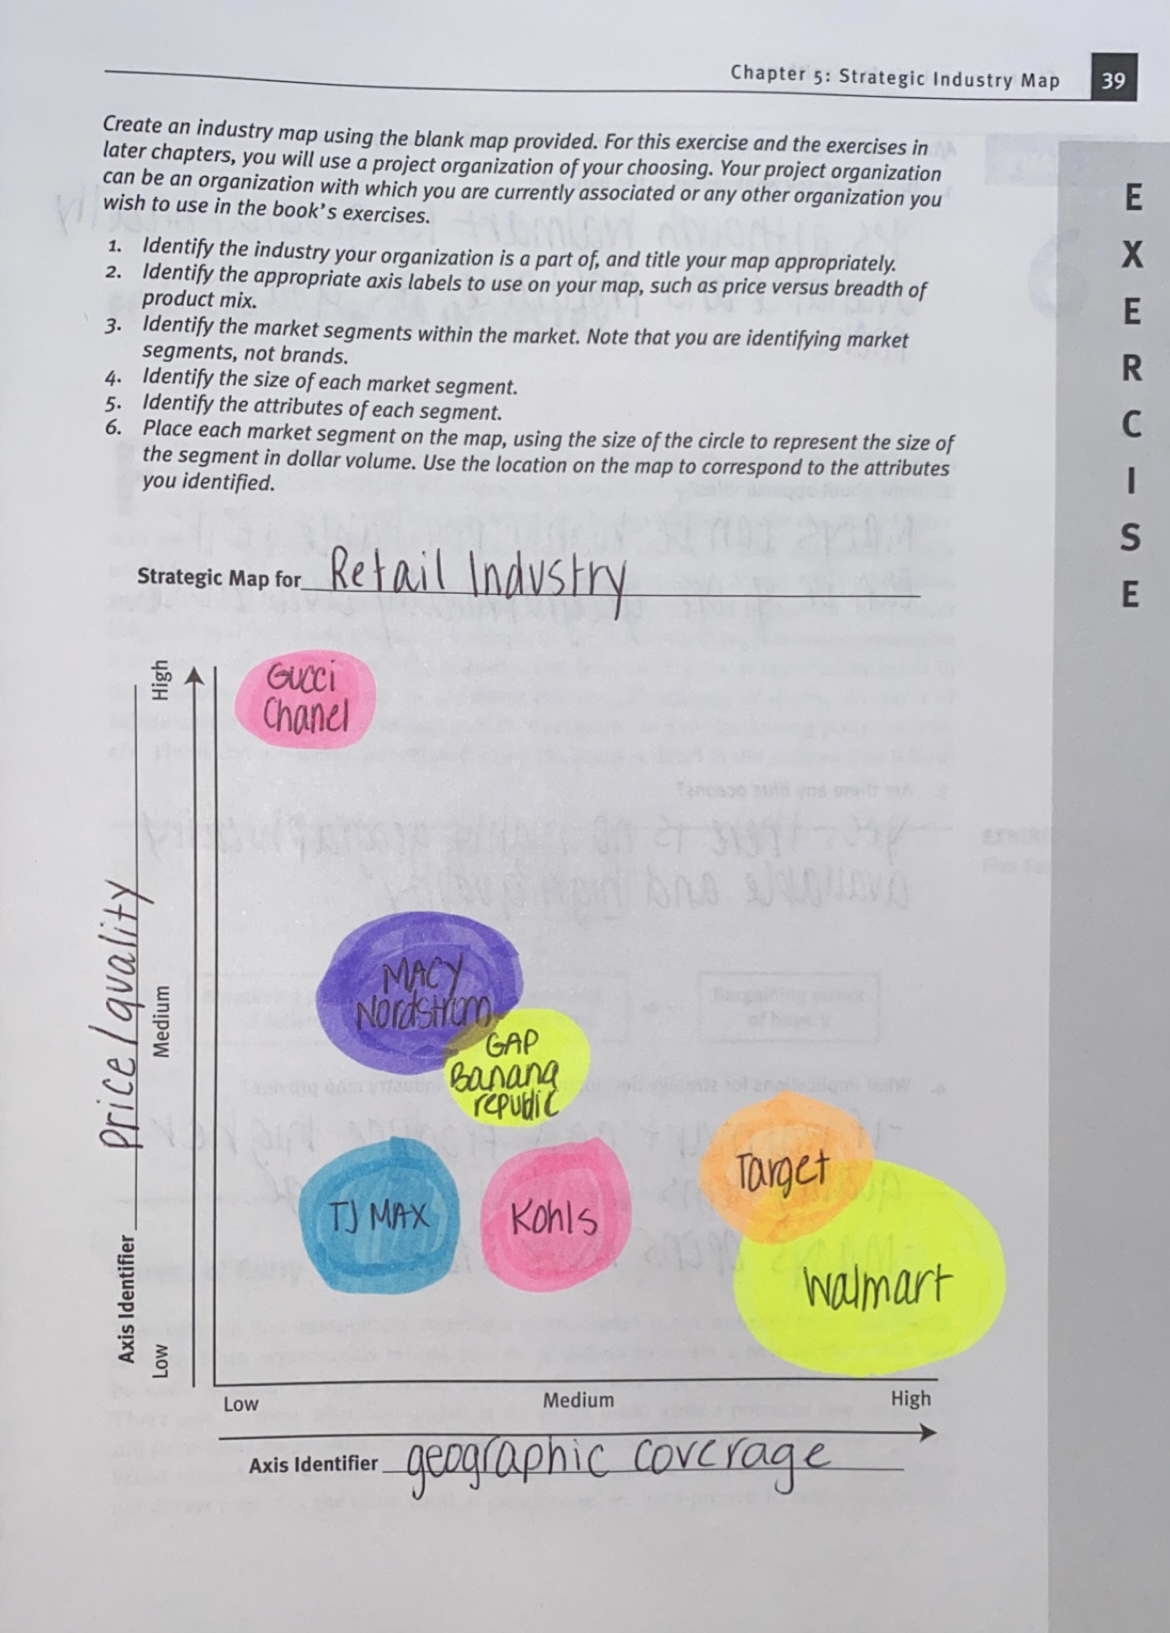 Chapter 5: Strategic Industry Map 39
Create an industry map using the blank map provided. For this exercise and the exercises in
later chapters, you will use a project organization of your choosing. Your project organization
can be an organization with which you are currently associated or any other organization you
wish to use in the book's exercises.
1. Identify the industry your organization is a part of, and title your map appropriately.
2. Identify the appropriate axis labels to use on your map, such as price versus breadth of
product mix.
3. Identify the market segments within the market. Note that you are identifying market
segments, not brands.
4. Identify the size of each market segment.
5. Identify the attributes of each segment.
6. Place each market segment on the map, using the size of the circle to represent the size of
the segment in dollar volume. Use the location on the map to correspond to the attributes
you identified.
EXERCISE
Strategic Map for Retail Industry
High
Gucci
Chanel
Price/quality
Medium
MACY
Nordstrom
GAP
Banana
republic
Target
TJ MAX
Kohls
Walmart
Axis Identifier
Low
Low Medium High
Axis Identifier geographic coverage